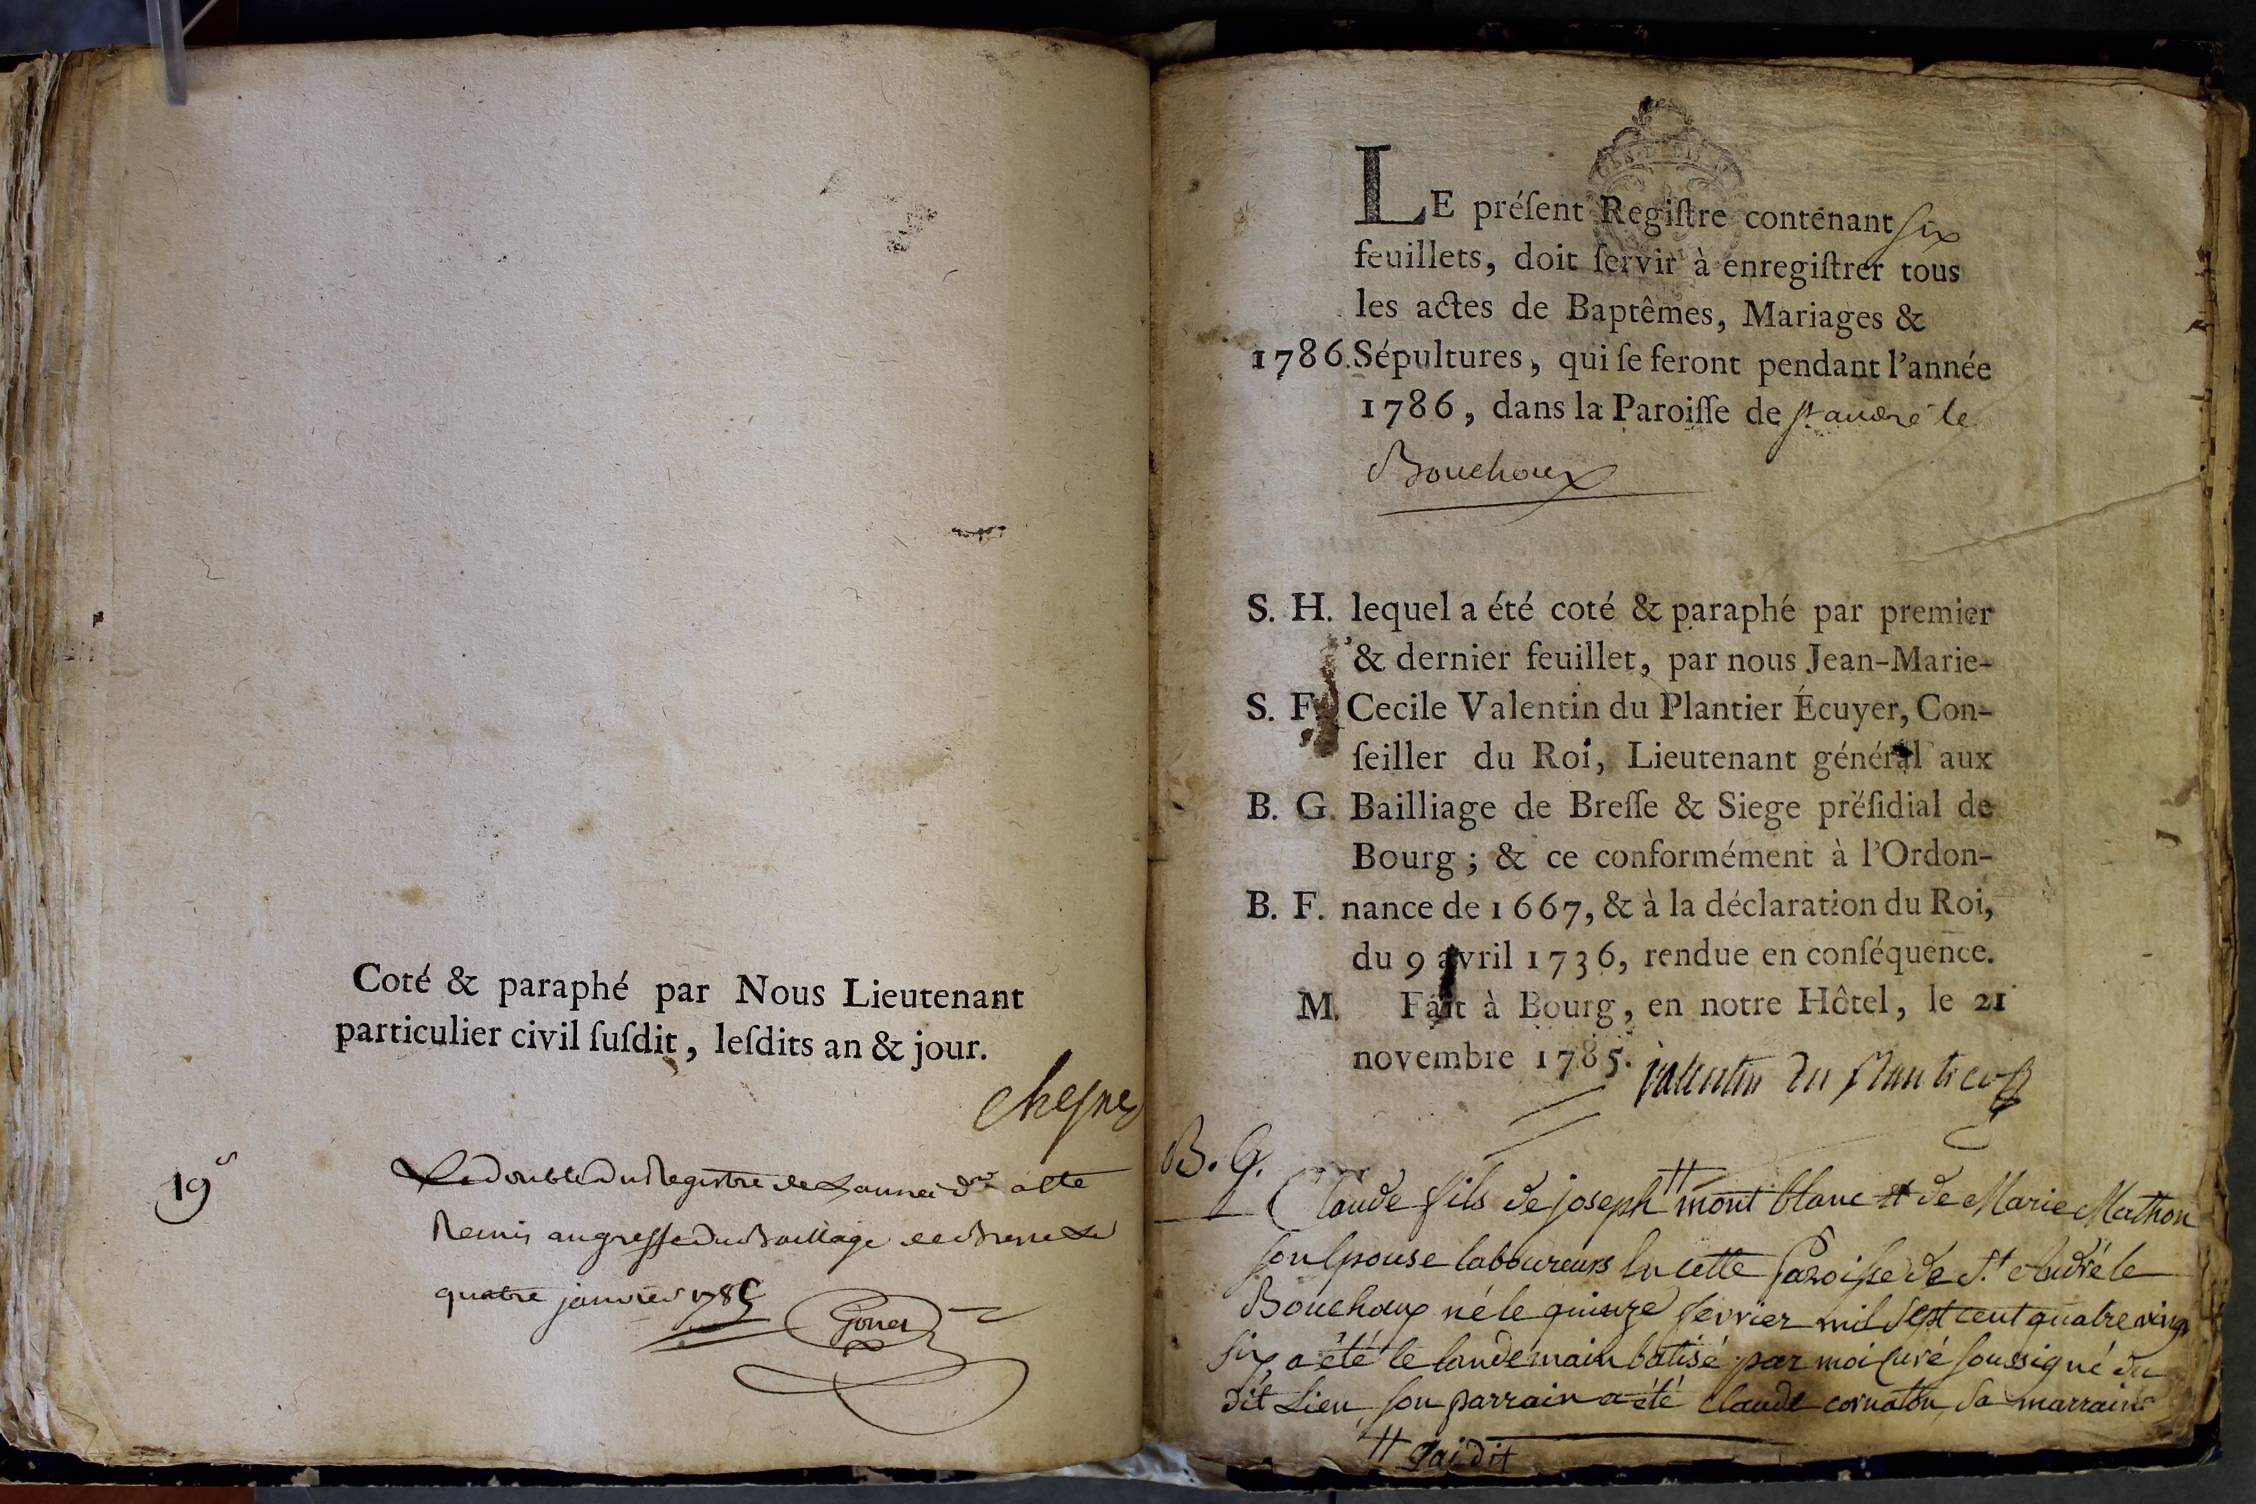 Coté & paraphé par Nous Lieutenant
particulier civil ſuſdit, leſdits an & jour.
cheſne
19
Le double du Registre de L'année dre a été
Remis au greffe du Bailliage de Bresse Le
quatre janvier 1785
LE préſent Regiſtre contenant ſix
feuillets, doit ſervir à enregiſtrer tous
les actes de Baptêmes, Mariages &
1786. Sépultures, qui ſe feront pendant l'année
1786, dans la Paroiſſe de St andré le
Bouchoux
S. H. lequel a été coté & paraphé par premier
& dernier feuillet, par nous Jean-Marie-
S. F. Cecile Valentin du Plantier Écuyer, Con-
ſeiller du Roi, Lieutenant général aux
B. G. Bailliage de Breſſe & Siege préſidial de
Bourg ; & ce conformément à l'Ordon-
B. F. nance de 1667, & à la déclaration du Roi,
du 9 avril 1736, rendue en conſéquence.
M. Fait à Bourg, en notre Hôtel, le 21
novembre 1785. Valentin du Plantier
B. G.
Claude fils de joseph # mont blanc et de Marie Mathon
son Epouse laboureurs En cette Paroiſse de St André le
Bouchoux né le quinze fevrier mil Sept cent quatre ving
Six a été le landemain batisé par moi Curé soussigné du
dit Lieu, son parrain a été Claude cornaton, Sa marraine
# Gai dit